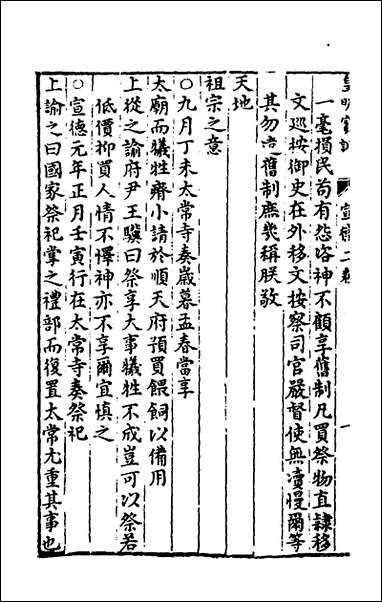 皇明寶訓 宣德二卷 一
一毫損民苟有怨咨神不顧享舊制凡買祭物直隸移
文巡按御史在外移文按察司官嚴督使無瀆慢爾等
其勿違舊制庶幾稱朕敬
天地
祖宗之意
○九月丁未太常寺奏歲暮孟春當享
太廟而犧牲瘠小請於順天府預買餵飼以備用
上從之諭府尹王驥曰祭享大事犧牲不成豈可以祭若
低價抑買人情不懌神亦不享爾宜慎之
○宣德元年正月壬寅行在太常寺奏祭祀
上諭之曰國家祭祀掌之禮部而復置太常尤重其事也